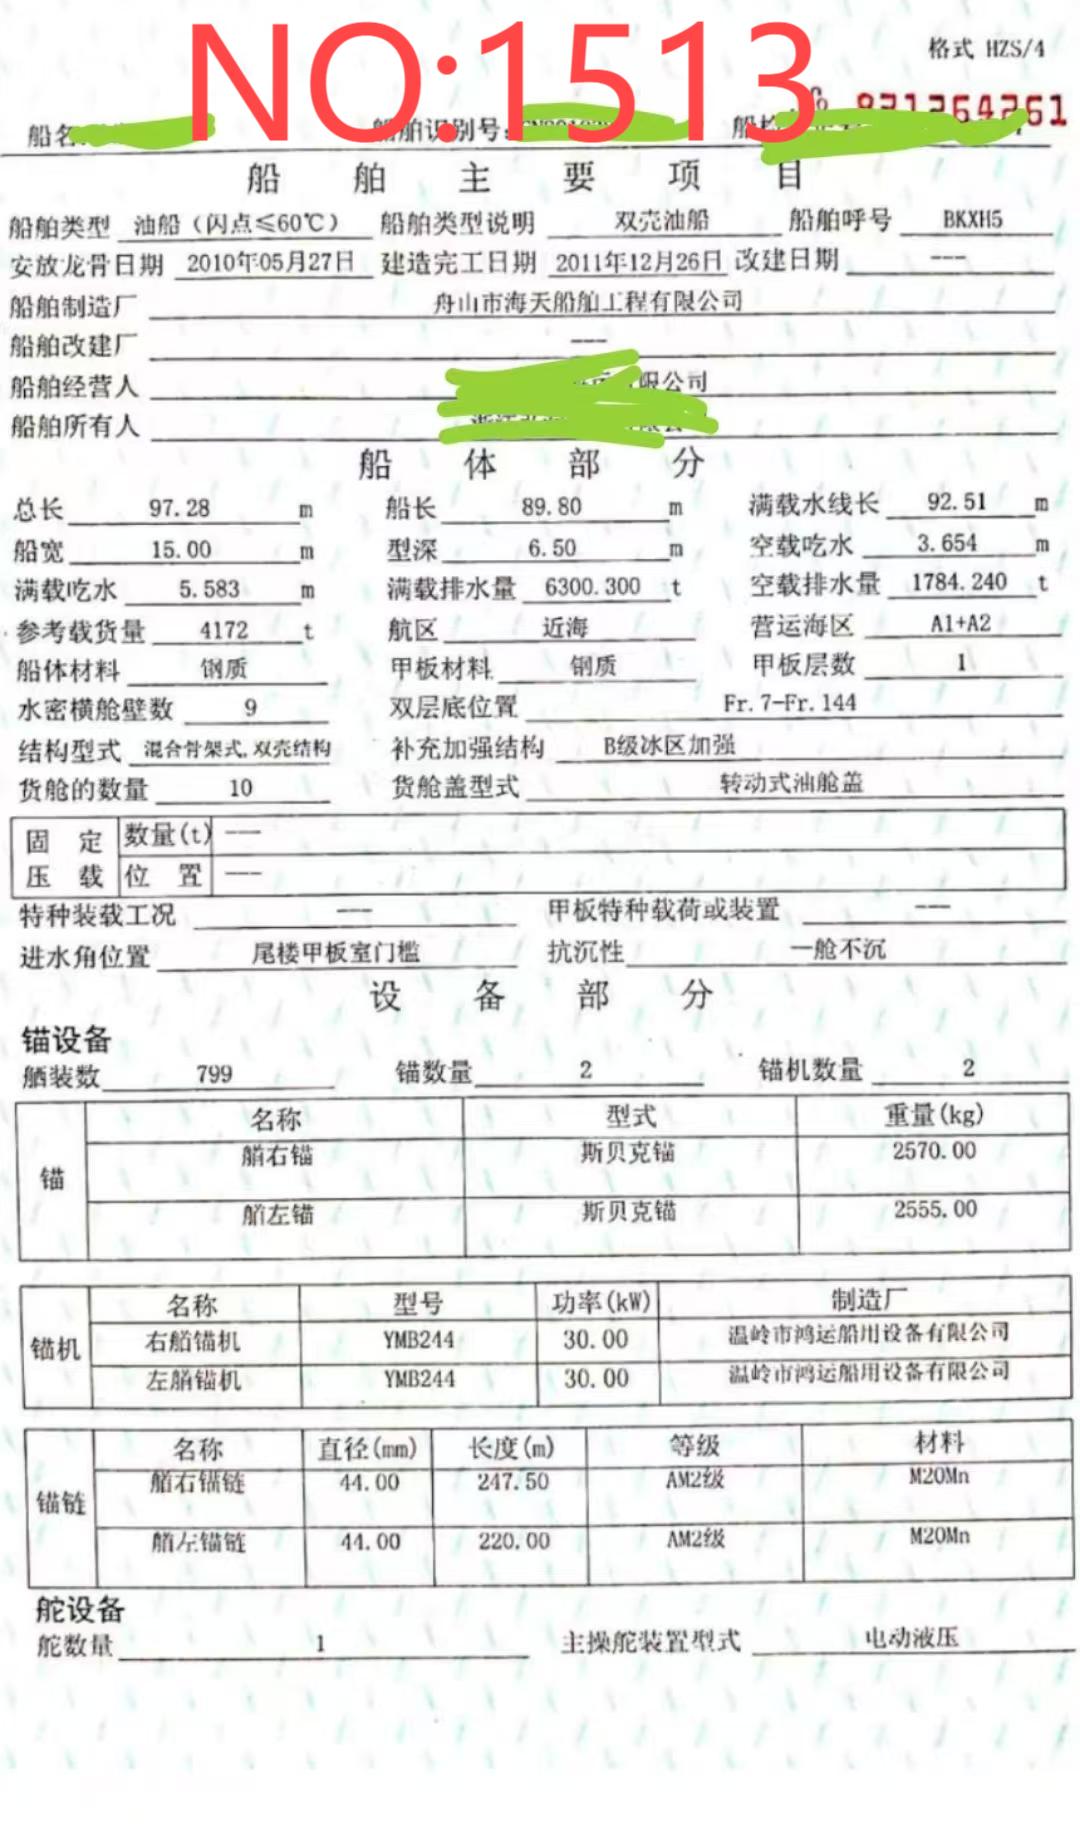 NO:1513
格式 HZS/4
船名 船舶识别号: 船检
船 舶 主 要 项 目
船舶类型 油船（闪点≤60℃） 船舶类型说明 双壳油船 船舶呼号 BKXH5
安放龙骨日期 2010年05月27日 建造完工日期 2011年12月26日 改建日期 ---
船舶制造厂 舟山市海天船舶工程有限公司
船舶改建厂 ---
船舶经营人 限公司
船舶所有人
船 体 部 分
总长 97.28 m 船长 89.80 m 满载水线长 92.51 m
船宽 15.00 m 型深 6.50 m 空载吃水 3.654 m
满载吃水 5.583 m 满载排水量 6300.300 t 空载排水量 1784.240 t
参考载货量 4172 t 航区 近海 营运海区 A1+A2
船体材料 钢质 甲板材料 钢质 甲板层数 1
水密横舱壁数 9 双层底位置 Fr.7-Fr.144
结构型式 混合骨架式,双壳结构 补充加强结构 B级冰区加强
货舱的数量 10 货舱盖型式 转动式油舱盖
固 定 数量(t) ---
压 载 位 置 ---
特种装载工况 --- 甲板特种载荷或装置 ---
进水角位置 尾楼甲板室门槛 抗沉性 一舱不沉
设 备 部 分
锚设备
舾装数 799 锚数量 2 锚机数量 2
名称 型式 重量(kg)
锚
艏右锚 斯贝克锚 2570.00
艏左锚 斯贝克锚 2555.00
名称 型号 功率(kW) 制造厂
锚机
右艏锚机 YMB244 30.00 温岭市鸿运船用设备有限公司
左艏锚机 YMB244 30.00 温岭市鸿运船用设备有限公司
名称 直径(mm) 长度(m) 等级 材料
锚链
艏右锚链 44.00 247.50 AM2级 M20Mn
艏左锚链 44.00 220.00 AM2级 M20Mn
舵设备
舵数量 1 主操舵装置型式 电动液压